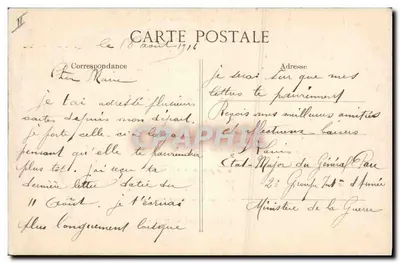 CARTE POSTALE
le 18 août 1916
Correspondance
Adresse
Marie
Je t'ai adressé plusieurs
cartes depuis mon départ.
je porte celle-ci
pensant qu'elle te parviendra
plus tôt. j'ai reçu ta
dernière lettre datée du
11 Août. je t'écrirai
plus longuement lorsque
je serai sûr que mes
lettres te parviennent
Reçois mes meilleures amitiés
et affectueux baisers
Etat-Major du Général
2e Groupe d'Armée
Ministère de la Guerre